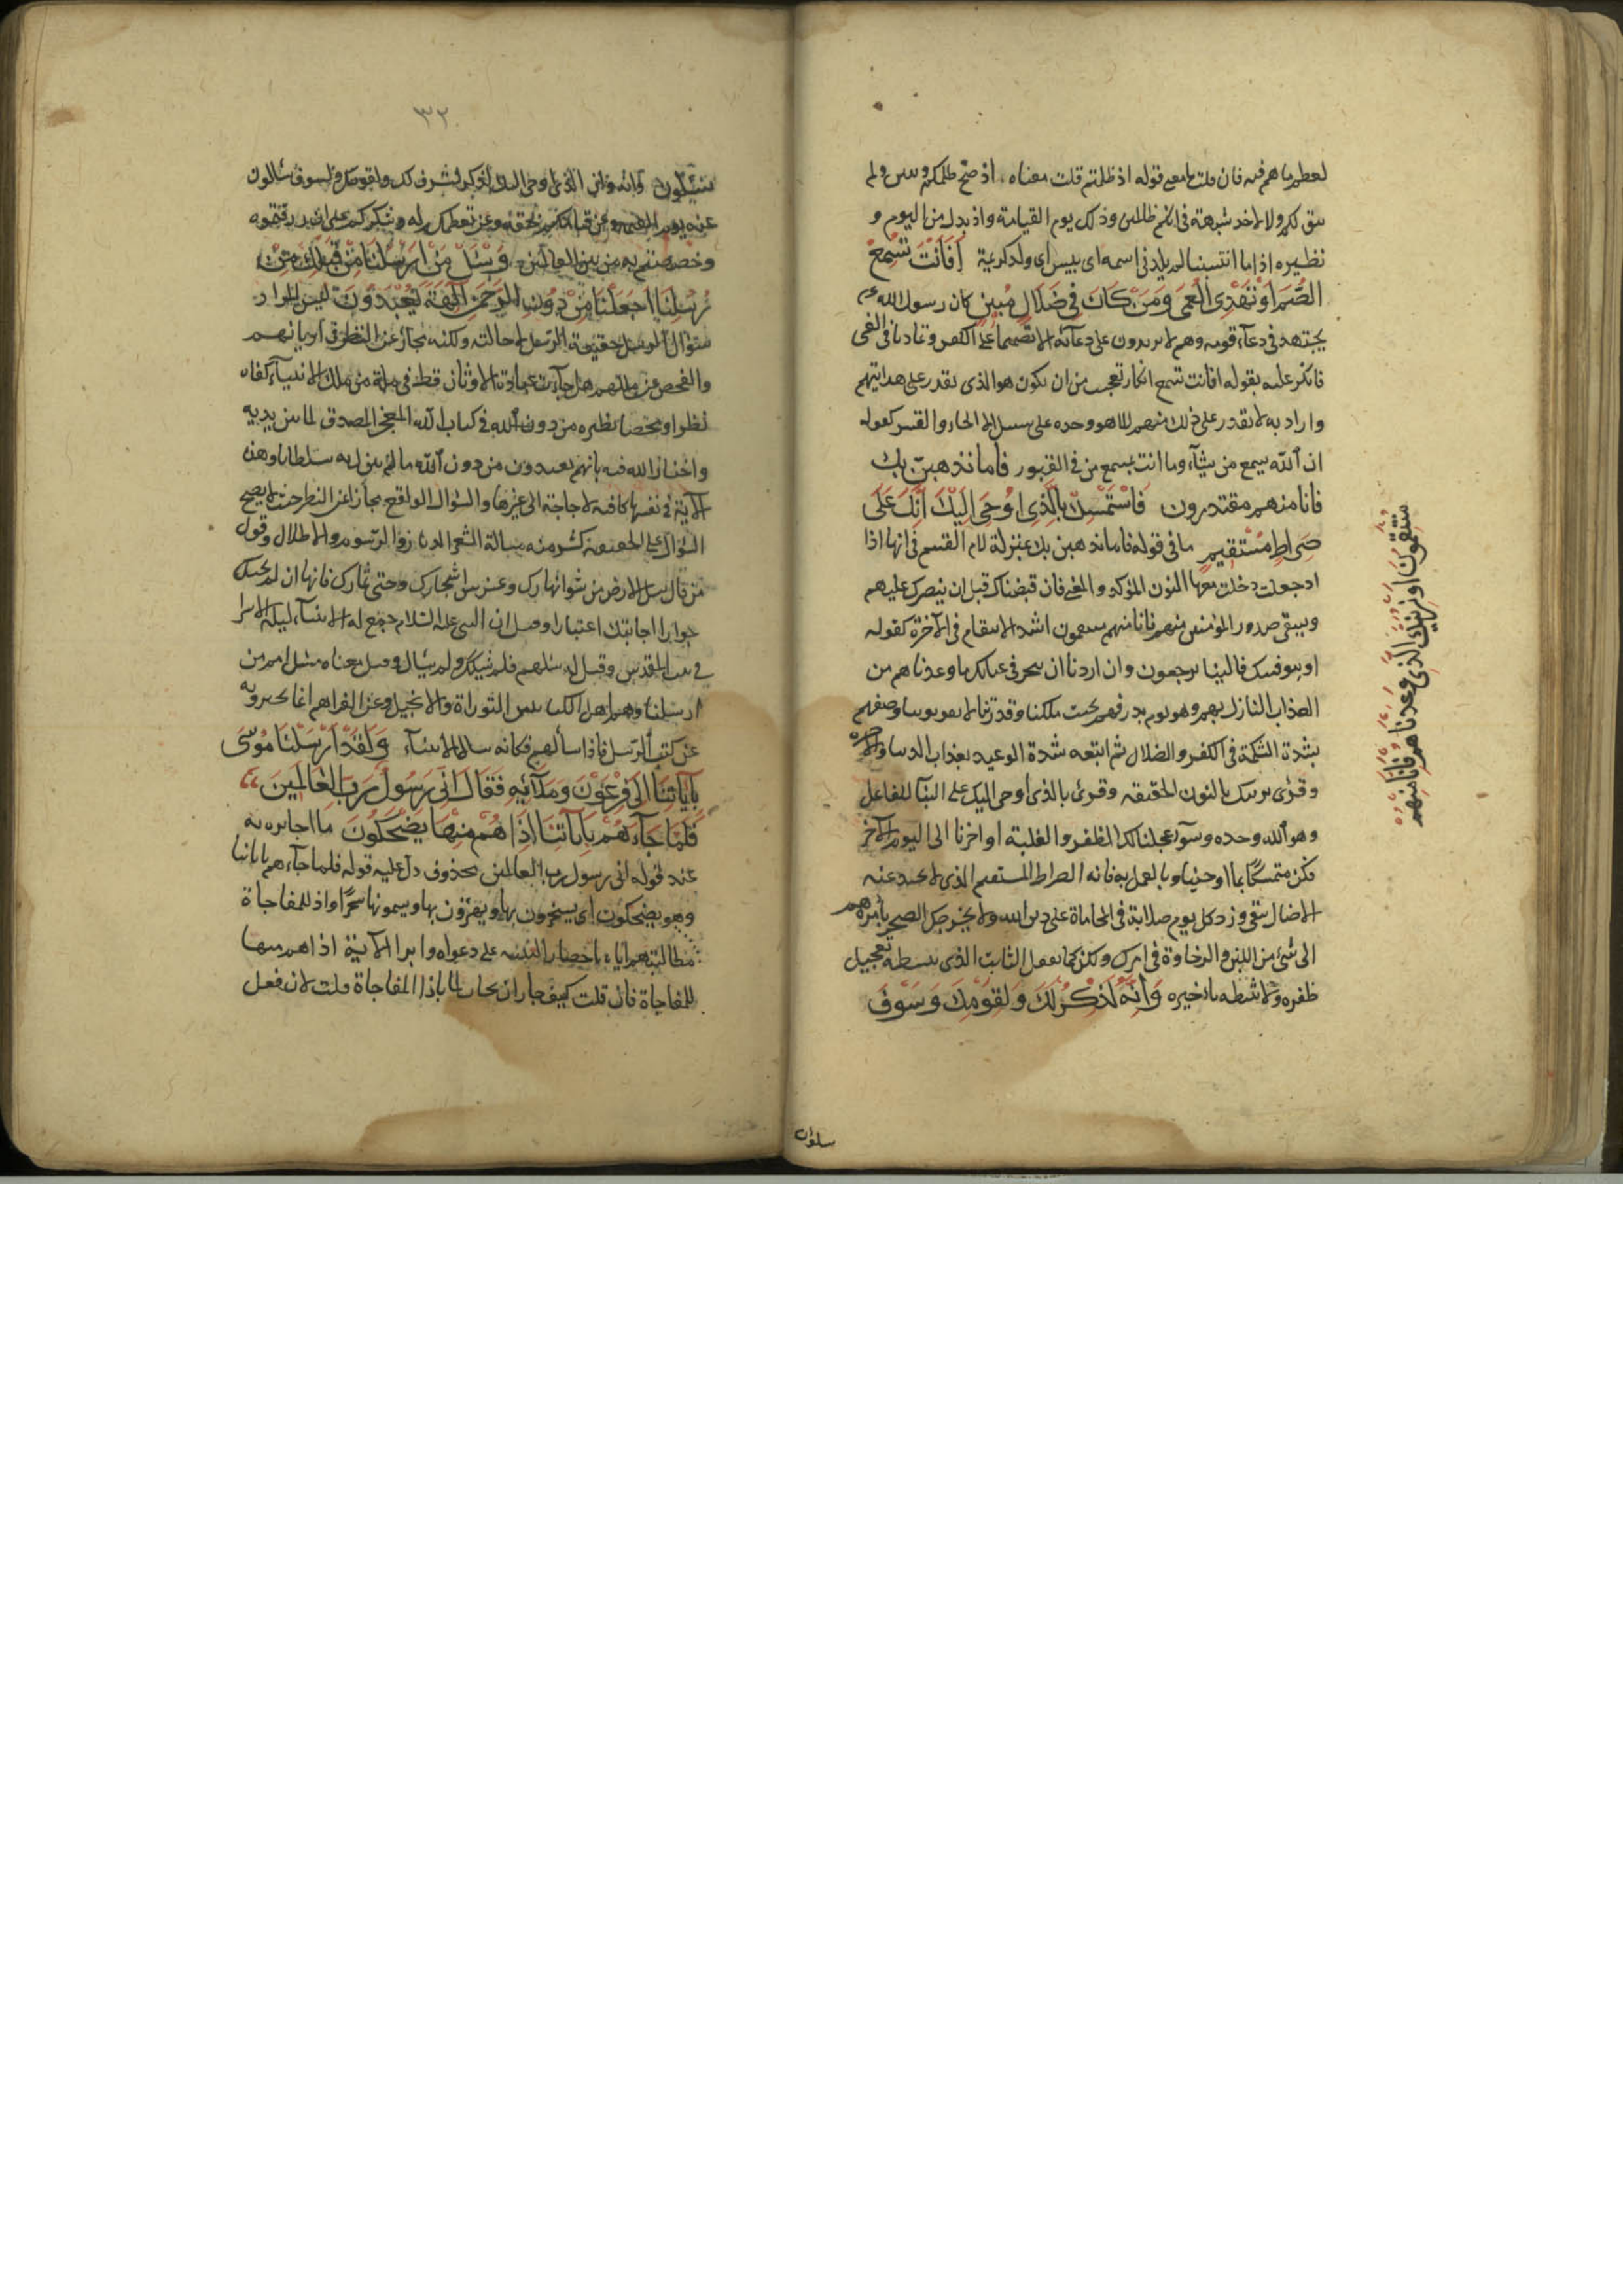 لعظم ما هم فيه فان قلت ما معنى قوله اذ ظلمتم قلت معناه . اذ صح ظلمكم وتبين ولم
يبق لكم ولا لاحد شبهة في انكم ظالمين وذلك يوم القيامة واذ بدل من اليوم و
نظيره اذا ما انتسبنا لم يلدني لئيمة اي تبين اني ولد كريمة أَفَأَنْتَ تُسْمِعُ
الصُّمَّ أَوْ تَهْدِي الْعُمْيَ وَمَنْ كَانَ فِي ضَلَالٍ مُبِينٍ كان رسول الله
يجتهد في دعآء قومه وهم لا يزيدون على دعآئه الا تصميما على الكفر وتماديا في الغى
فانكر عليه بقوله افانت تسمع انكار تعجيب من ان يكون هو الذى يقدر على هدايتهم
واراد به لا يقدر على ذلك منهم الا هو وحده على سبيل الالجاء والقسر كقوله
ان الله يسمع من يشآء وما انت بمسمع من في القبور فاما نذهبن بك
فانا منهم مقتدرون فَاسْتَمْسِكْ بِالَّذِي اُوحِيَ اِلَيْكَ اِنَّكَ عَلَى
صِرَاطٍ مُسْتَقِيمٍ ما في قوله فاما نذهبن بك بمنزلة لام القسم في انها اذا
ادخلت دخلت معها النون المؤكدة والمعنى فان قبضناك قبل ان ينصرك عليهم
ويشفى صدور المؤمنين منهم فانا منهم منتقمون اشد الانتقام في الآخرة كقوله
او نتوفينك فالينا يرجعون وان اردنا ان ننجز في حياتك ما وعدناهم من
العذاب النازل بهم وهو يوم بدر فهم تحت ملكتنا وقدرتنا لا يفوتوننا وصفهم
بشدة الشكيمة في الكفر والضلال ثم اتبعه شدة الوعيد بعذاب الدنيا والآخرة
وقرئ نرينك بالنون الخفيفة وقرئ بالذي اوحى اليك على البنآ للفاعل
وهو الله وحده وسوآء عجلنا لك الظفر والغلبة او اخرنا الى اليوم الآخر
فكن متمسكا بما اوحينا وبالعمل به فانه الصراط المستقيم الذي لا يحيد عنه
الا ضال شقى وزد كل يوم صلابة في المحاماة على دين الله ولا يخرجك الضجر بامرهم
الى شئ من اللين والرخاوة في امرك ولكن كما يفعل الثابت الذي ينشطه تعجيل
ظفره ولا يثبطه تاخيره وَاِنَّهُ لَذِكْرٌ لَكَ وَلِقَوْمِكَ وَسَوْفَ
منتقمون او نرينك الذي وعدناهم فانا منهم
٣٢
تُسْئَلُونَ وانه وان الذي اوحى اليك لذكر لشرف لك ولقومك ولسوف تسئلون
عنه يوم القيمة وعن قيامكم بحقه وعن تعظيمكم له وشكركم على ان رزقتموه
وخصصتم به من بين العالمين وَسْئَلْ مَنْ اَرْسَلْنَا مِنْ قَبْلِكَ مِنْ
رُسُلِنَا اَجَعَلْنَا مِنْ دُونِ الرَّحْمَنِ آلِهَةً يُعْبَدُونَ ليس المراد
بسؤال الرسل حقيقة السؤال لاحالته ولكنه مجاز عن النظر في اديانهم
والفحص عن مللهم هل جآءت عبادة الاوثان قط في ملة من ملل الانبيآء كفاه
نظرا وفحصا نظره من دون الله في كتاب الله المعجز المصدق لما بين يديه
واخبار الله فيه بانهم يعبدون من دون الله ما لم ينزل به سلطانا وهذه
الآية في نفسها كافية لا حاجة الى غيرها والسؤال الواقع مجازا عن النظر حيث لا يصح
السؤال على الحقيقة كثير منه مسالة الشعرآء الديار والرسوم والاطلال وقول
من قال سل الارض من شق انهارك وغرس اشجارك وجنى ثمارك فانها ان لم تجبك
حوارا اجابتك اعتبارا وقيل ان النبى عليه السلام جمع له الانبيآء ليلة الاسرا
في بيت المقدس وقيل له سلهم فلم يشكك ولم يسأل وقيل معناه سل امم من
ارسلنا وهم اهل الكتابين التوراة والانجيل وعن الفرآء هم انما يخبرونه
عن كتب الرسل فاذا سألهم فكانه سال الانبيآء وَلَقَدْ اَرْسَلْنَا مُوسَى
بِآيَاتِنَا اِلَى فِرْعَوْنَ وَمَلَآئِهِ فَقَالَ اِنِّي رَسُولُ رَبِّ الْعَالَمِينَ
فَلَمَّا جَآءَهُمْ بِآيَاتِنَا اِذَا هُمْ مِنْهَا يَضْحَكُونَ ما اجابوه به
عند قوله انى رسول رب العالمين محذوف دل عليه قوله فلما جآءهم باياتنا
وهو يضحكون اى يسخرون بها ويهزؤن بها ويسمونها سحرا واذا للمفاجاة
مطالبتهم اياه باحضار البينة على دعواه وابراز الآية اذا هم منها
للمفاجاة فان قلت كيف جاز ان يجاب لما باذا المفاجاة قلت لان فعل